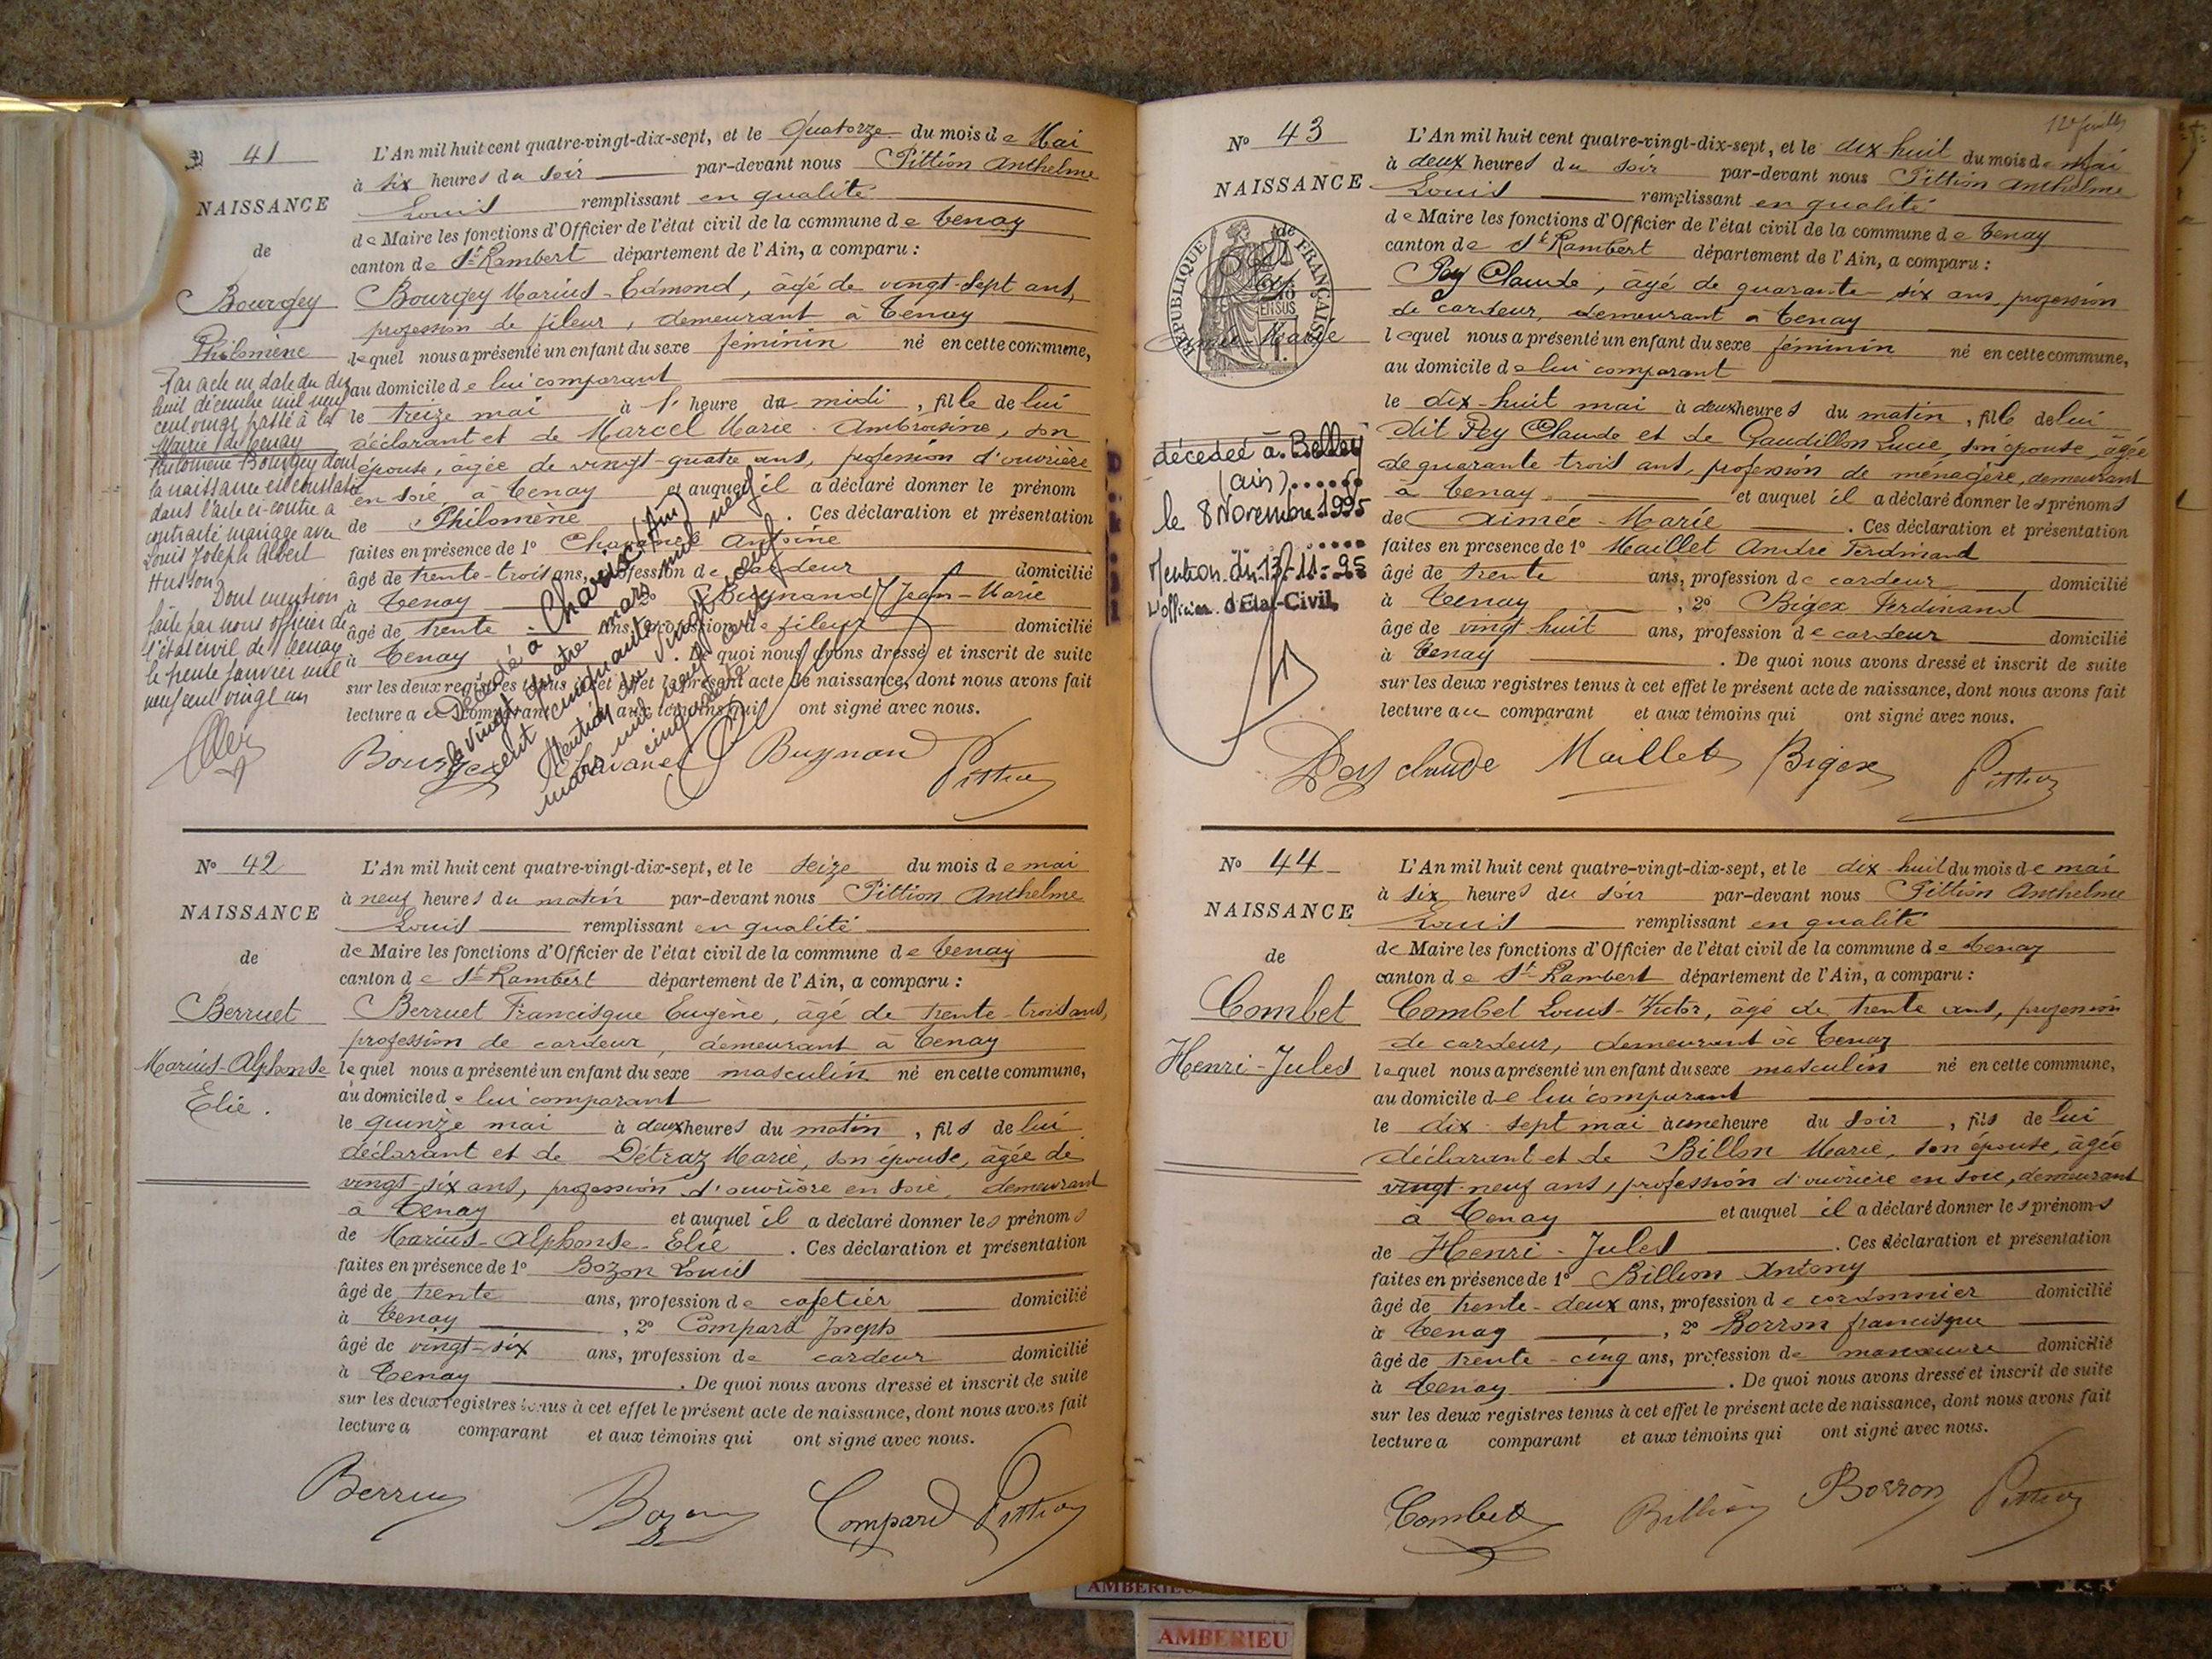 N° 41
NAISSANCE
de
Bourgey
Philomène
Par acte en date du dix
huit décembre mil neuf
cent vingt passé à la
Mairie de Tenay
Philomène Bourgey dont
la naissance est constatée
dans l'acte ci-contre a
contracté mariage avec
Louis Joseph Albert
Husson. Dont mention
faite par nous officier de
l'état civil de Tenay
le trente janvier mil
neuf cent vingt un
L'An mil huit cent quatre-vingt-dix-sept, et le Quatorze du mois de Mai
à six heures du soir par-devant nous Pittion Anthelme
Louis remplissant en qualité
de Maire les fonctions d'Officier de l'état civil de la commune de Tenay
canton de St Rambert département de l'Ain, a comparu :
Bourgey Marius-Edmond, âgé de vingt-sept ans,
profession de fileur, demeurant à Tenay
lequel nous a présenté un enfant du sexe féminin né en cette commune,
au domicile de lui comparant
le treize mai à 1 heure du midi, fille de lui
déclarant et de Marcel Marie Ambroisine, son
épouse, âgée de vingt-quatre ans, profession d'ouvrière
en soie, à Tenay et auquel il a déclaré donner le prénom
de Philomène. Ces déclaration et présentation
faites en présence de 1° Chavanel Antoine
âgé de trente-trois ans, profession de cardeur domicilié
à Tenay 2° Bugnand Jean-Marie
âgé de trente ans, profession de fileur domicilié
à Tenay. De quoi nous avons dressé et inscrit de suite
sur les deux registres tenus à cet effet le présent acte de naissance, dont nous avons fait
lecture au comparant et aux témoins qui ont signé avec nous.
Décédé à Charnoz (Ain)
le vingt quatre mars mil neuf
cent cinquante neuf
Mention du vingt sept
mars mil neuf cent
cinquante neuf
Bourgey Chavanel Bugnand Pittion
N° 42
NAISSANCE
de
Berruet
Marius-Alphonse
Elie.
L'An mil huit cent quatre-vingt-dix-sept, et le seize du mois de mai
à neuf heures du matin par-devant nous Pittion Anthelme
Louis remplissant en qualité
de Maire les fonctions d'Officier de l'état civil de la commune de Tenay
canton de St Rambert département de l'Ain, a comparu :
Berruet Francisque Eugène, âgé de trente-trois ans,
profession de cardeur, demeurant à Tenay
lequel nous a présenté un enfant du sexe masculin né en cette commune,
au domicile de lui comparant
le quinze mai à deux heures du matin, fils de lui
déclarant et de Détraz Marie, son épouse, âgée de
vingt-six ans, profession d'ouvrière en soie, demeurant
à Tenay et auquel il a déclaré donner les prénoms
de Marius-Alphonse-Elie. Ces déclaration et présentation
faites en présence de 1° Bozon Louis
âgé de trente ans, profession de cafetier domicilié
à Tenay, 2° Compard Joseph
âgé de vingt-six ans, profession de cardeur domicilié
à Tenay. De quoi nous avons dressé et inscrit de suite
sur les deux registres tenus à cet effet le présent acte de naissance, dont nous avons fait
lecture a comparant et aux témoins qui ont signé avec nous.
Berruet Bozon Compard Pittion
12e feuillet
N° 43
NAISSANCE
de
REPUBLIQUE FRANÇAISE
Pey
Aimée-Marie
décédée à Belley
(ain)......
le 8 Novembre 1995
Mention du 13-11-95
L'officier d'Etat-Civil,
L'An mil huit cent quatre-vingt-dix-sept, et le dix-huit du mois de Mai
à deux heures du soir par-devant nous Pittion Anthelme
Louis remplissant en qualité
de Maire les fonctions d'Officier de l'état civil de la commune de Tenay
canton de St Rambert département de l'Ain, a comparu :
Pey Claude, âgé de quarante-six ans, profession
de cardeur, demeurant à Tenay
lequel nous a présenté un enfant du sexe féminin né en cette commune,
au domicile de lui comparant
le dix-huit mai à deux heures du matin, fille de lui
dit Pey Claude et de Gaudillon Lucie, son épouse, âgée
de quarante-trois ans, profession de ménagère, demeurant
à Tenay et auquel il a déclaré donner les prénoms
de Aimée-Marie. Ces déclaration et présentation
faites en présence de 1° Maillet André Ferdinand
âgé de trente ans, profession de cardeur domicilié
à Tenay, 2° Bigex Ferdinand
âgé de vingt huit ans, profession de cardeur domicilié
à Tenay. De quoi nous avons dressé et inscrit de suite
sur les deux registres tenus à cet effet le présent acte de naissance, dont nous avons fait
lecture au comparant et aux témoins qui ont signé avec nous.
Pey claude Maillet Bigex Pittion
N° 44
NAISSANCE
de
Combet
Henri-Jules
L'An mil huit cent quatre-vingt-dix-sept, et le dix-huit du mois de mai
à six heures du soir par-devant nous Pittion Anthelme
Louis remplissant en qualité
de Maire les fonctions d'Officier de l'état civil de la commune de Tenay
canton de St Rambert département de l'Ain, a comparu :
Combet Louis-Victor, âgé de trente ans, profession
de cardeur, demeurant à Tenay
lequel nous a présenté un enfant du sexe masculin né en cette commune,
au domicile de lui comparant
le dix-sept mai à une heure du soir, fils de lui
déclarant et de Billon Marie, son épouse, âgée
vingt-neuf ans, profession d'ouvrière en soie, demeurant
à Tenay et auquel il a déclaré donner les prénoms
de Henri-Jules. Ces déclaration et présentation
faites en présence de 1° Billion Antony
âgé de trente-deux ans, profession de cordonnier domicilié
à Tenay, 2° Borron francisque
âgé de trente-cinq ans, profession de manœuvre domicilié
à Tenay. De quoi nous avons dressé et inscrit de suite
sur les deux registres tenus à cet effet le présent acte de naissance, dont nous avons fait
lecture a comparant et aux témoins qui ont signé avec nous.
Combet Billion Borron Pittion
AMBERIEU
AMBERIEU